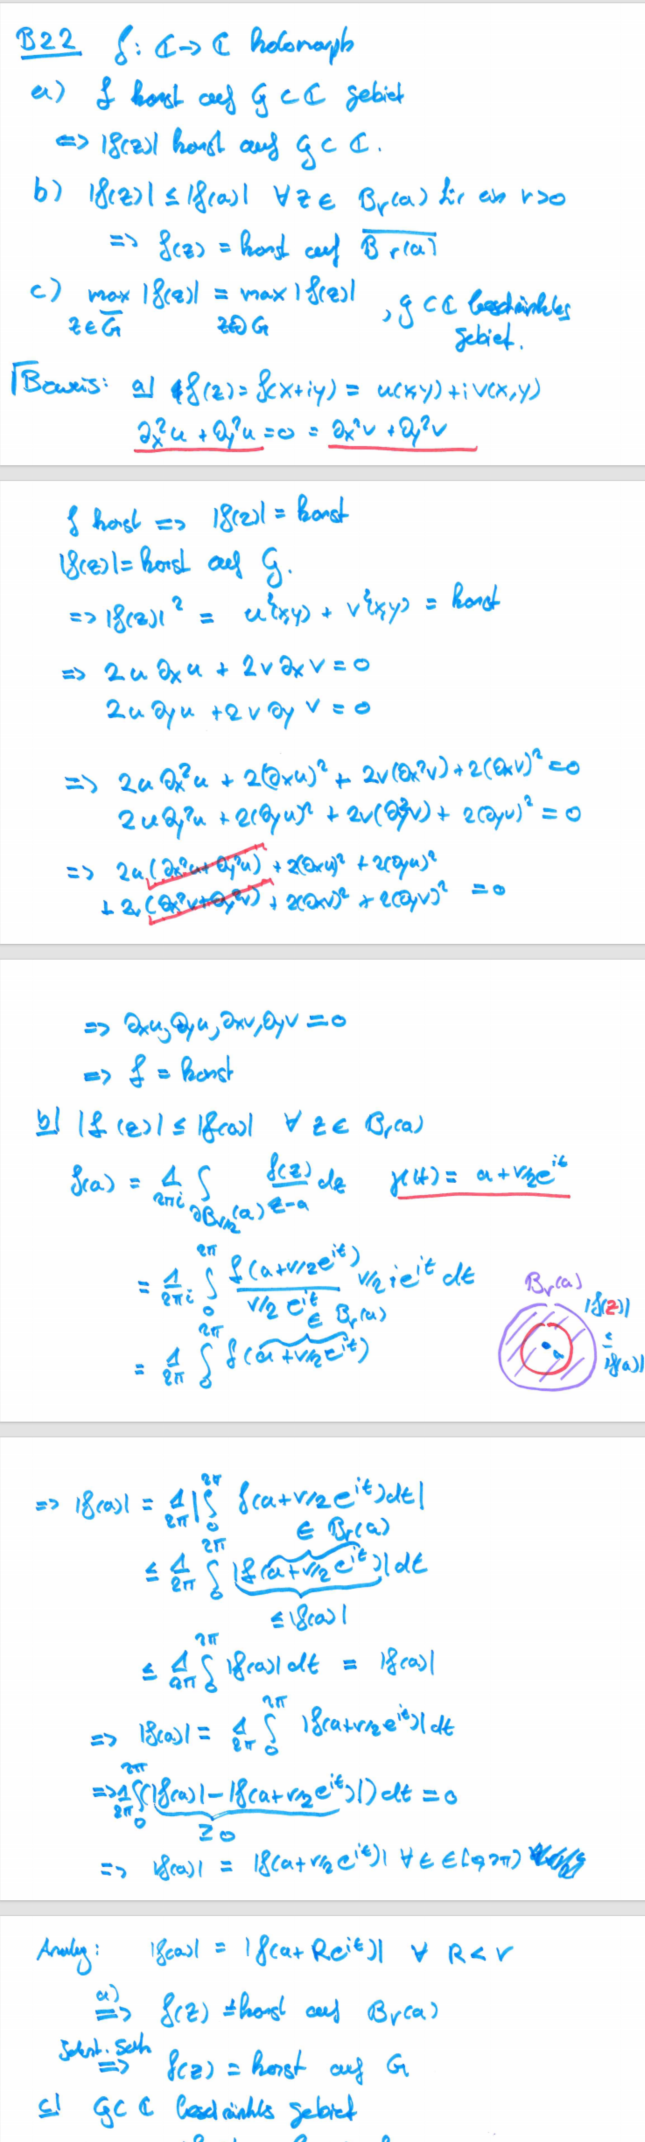 B22 f: ℂ → ℂ holomorph
a) f konst auf G ⊂ ℂ gebiet
<=> |f(z)| konst auf G ⊂ ℂ.
b) |f(z)| ≤ |f(a)| ∀ z ∈ Br(a) für ein r>0
=> f(z) = konst auf Br(a)
c) max |f(z)| = max |f(z)| , G ⊂ ℂ beschränktes
z∈G z∈∂G gebiet.
Beweis: a) f(z) = f(x+iy) = u(x,y) + i v(x,y)
∂x²u + ∂y²u = 0 = ∂x²v + ∂y²v
f konst => |f(z)| = konst
|f(z)| = konst auf G.
=> |f(z)|² = u²(x,y) + v²(x,y) = konst
=> 2u ∂xu + 2v ∂xv = 0
2u ∂yu + 2v ∂y v = 0
=> 2u ∂x²u + 2(∂xu)² + 2v(∂x²v) + 2(∂xv)² = 0
2u ∂y²u + 2(∂yu)² + 2v(∂y²v) + 2(∂yv)² = 0
=> 2u(∂x²u + ∂y²u) + 2(∂xu)² + 2(∂yu)²
+ 2v(∂x²v + ∂y²v) + 2(∂xv)² + 2(∂yv)² = 0
=> ∂xu, ∂yu, ∂xv, ∂yv = 0
=> f = konst
b) |f(z)| ≤ |f(a)| ∀ z ∈ Br(a)
f(a) = 1/2πi ∫∂Br/2(a) f(z)/z-a dz γ(t) = a + r/2 e^it
= 1/2πi ∫0^2π f(a + r/2 e^it) / r/2 e^it r/2 i e^it dt
∈ Br(a)
= 1/2π ∫0^2π f(a + r/2 e^it)
Br(a)
|f(z)|
≤
|f(a)|
a
=> |f(a)| = 1/2π |∫0^2π f(a + r/2 e^it) dt|
∈ Br(a)
≤ 1/2π ∫0^2π |f(a + r/2 e^it)| dt
≤ |f(a)|
≤ 1/2π ∫0^2π |f(a)| dt = |f(a)|
=> |f(a)| = 1/2π ∫0^2π |f(a + r/2 e^it)| dt
=> 1/2π ∫0^2π (|f(a)| - |f(a + r/2 e^it)|) dt = 0
≥ 0
=> |f(a)| = |f(a + r/2 e^it)| ∀ t ∈ [0, 2π)
Analog: |f(a)| = |f(a + R e^it)| ∀ R < r
a)
=> f(z) = konst auf Br(a)
=> f(z) = konst auf G
c) G ⊂ ℂ beschränktes gebiet